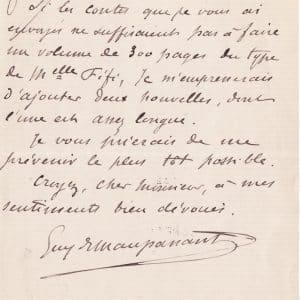 Si les contes que je vous ai
envoyés ne suffisaient pas à faire
un volume de 300 pages du type
de Melle Fifi, je m'empresserais
d'ajouter deux nouvelles, dont
l'une est assez longue.
Je vous prierais de me
prévenir le plus tôt possible.
Croyez, cher Monsieur, à mes
sentiments bien dévoués.
Guy de Maupassant